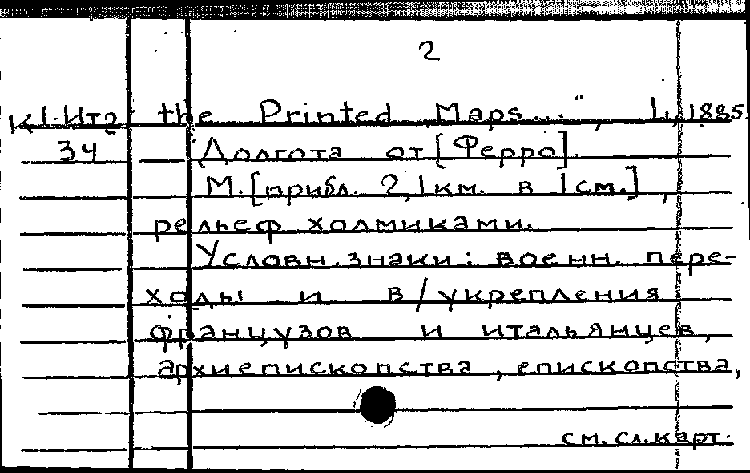 2
К 1-Ит2 the Printed Maps...", L, 1885
34 Долгота от [Ферро].
М. [прибл. 2,1 км. в 1 см.],
рельеф холмиками.
Условн. знаки: военн. пере-
ходы и в/укрепления
французов и итальянцев,
архиепископства, епископства,
см. сл. карт.